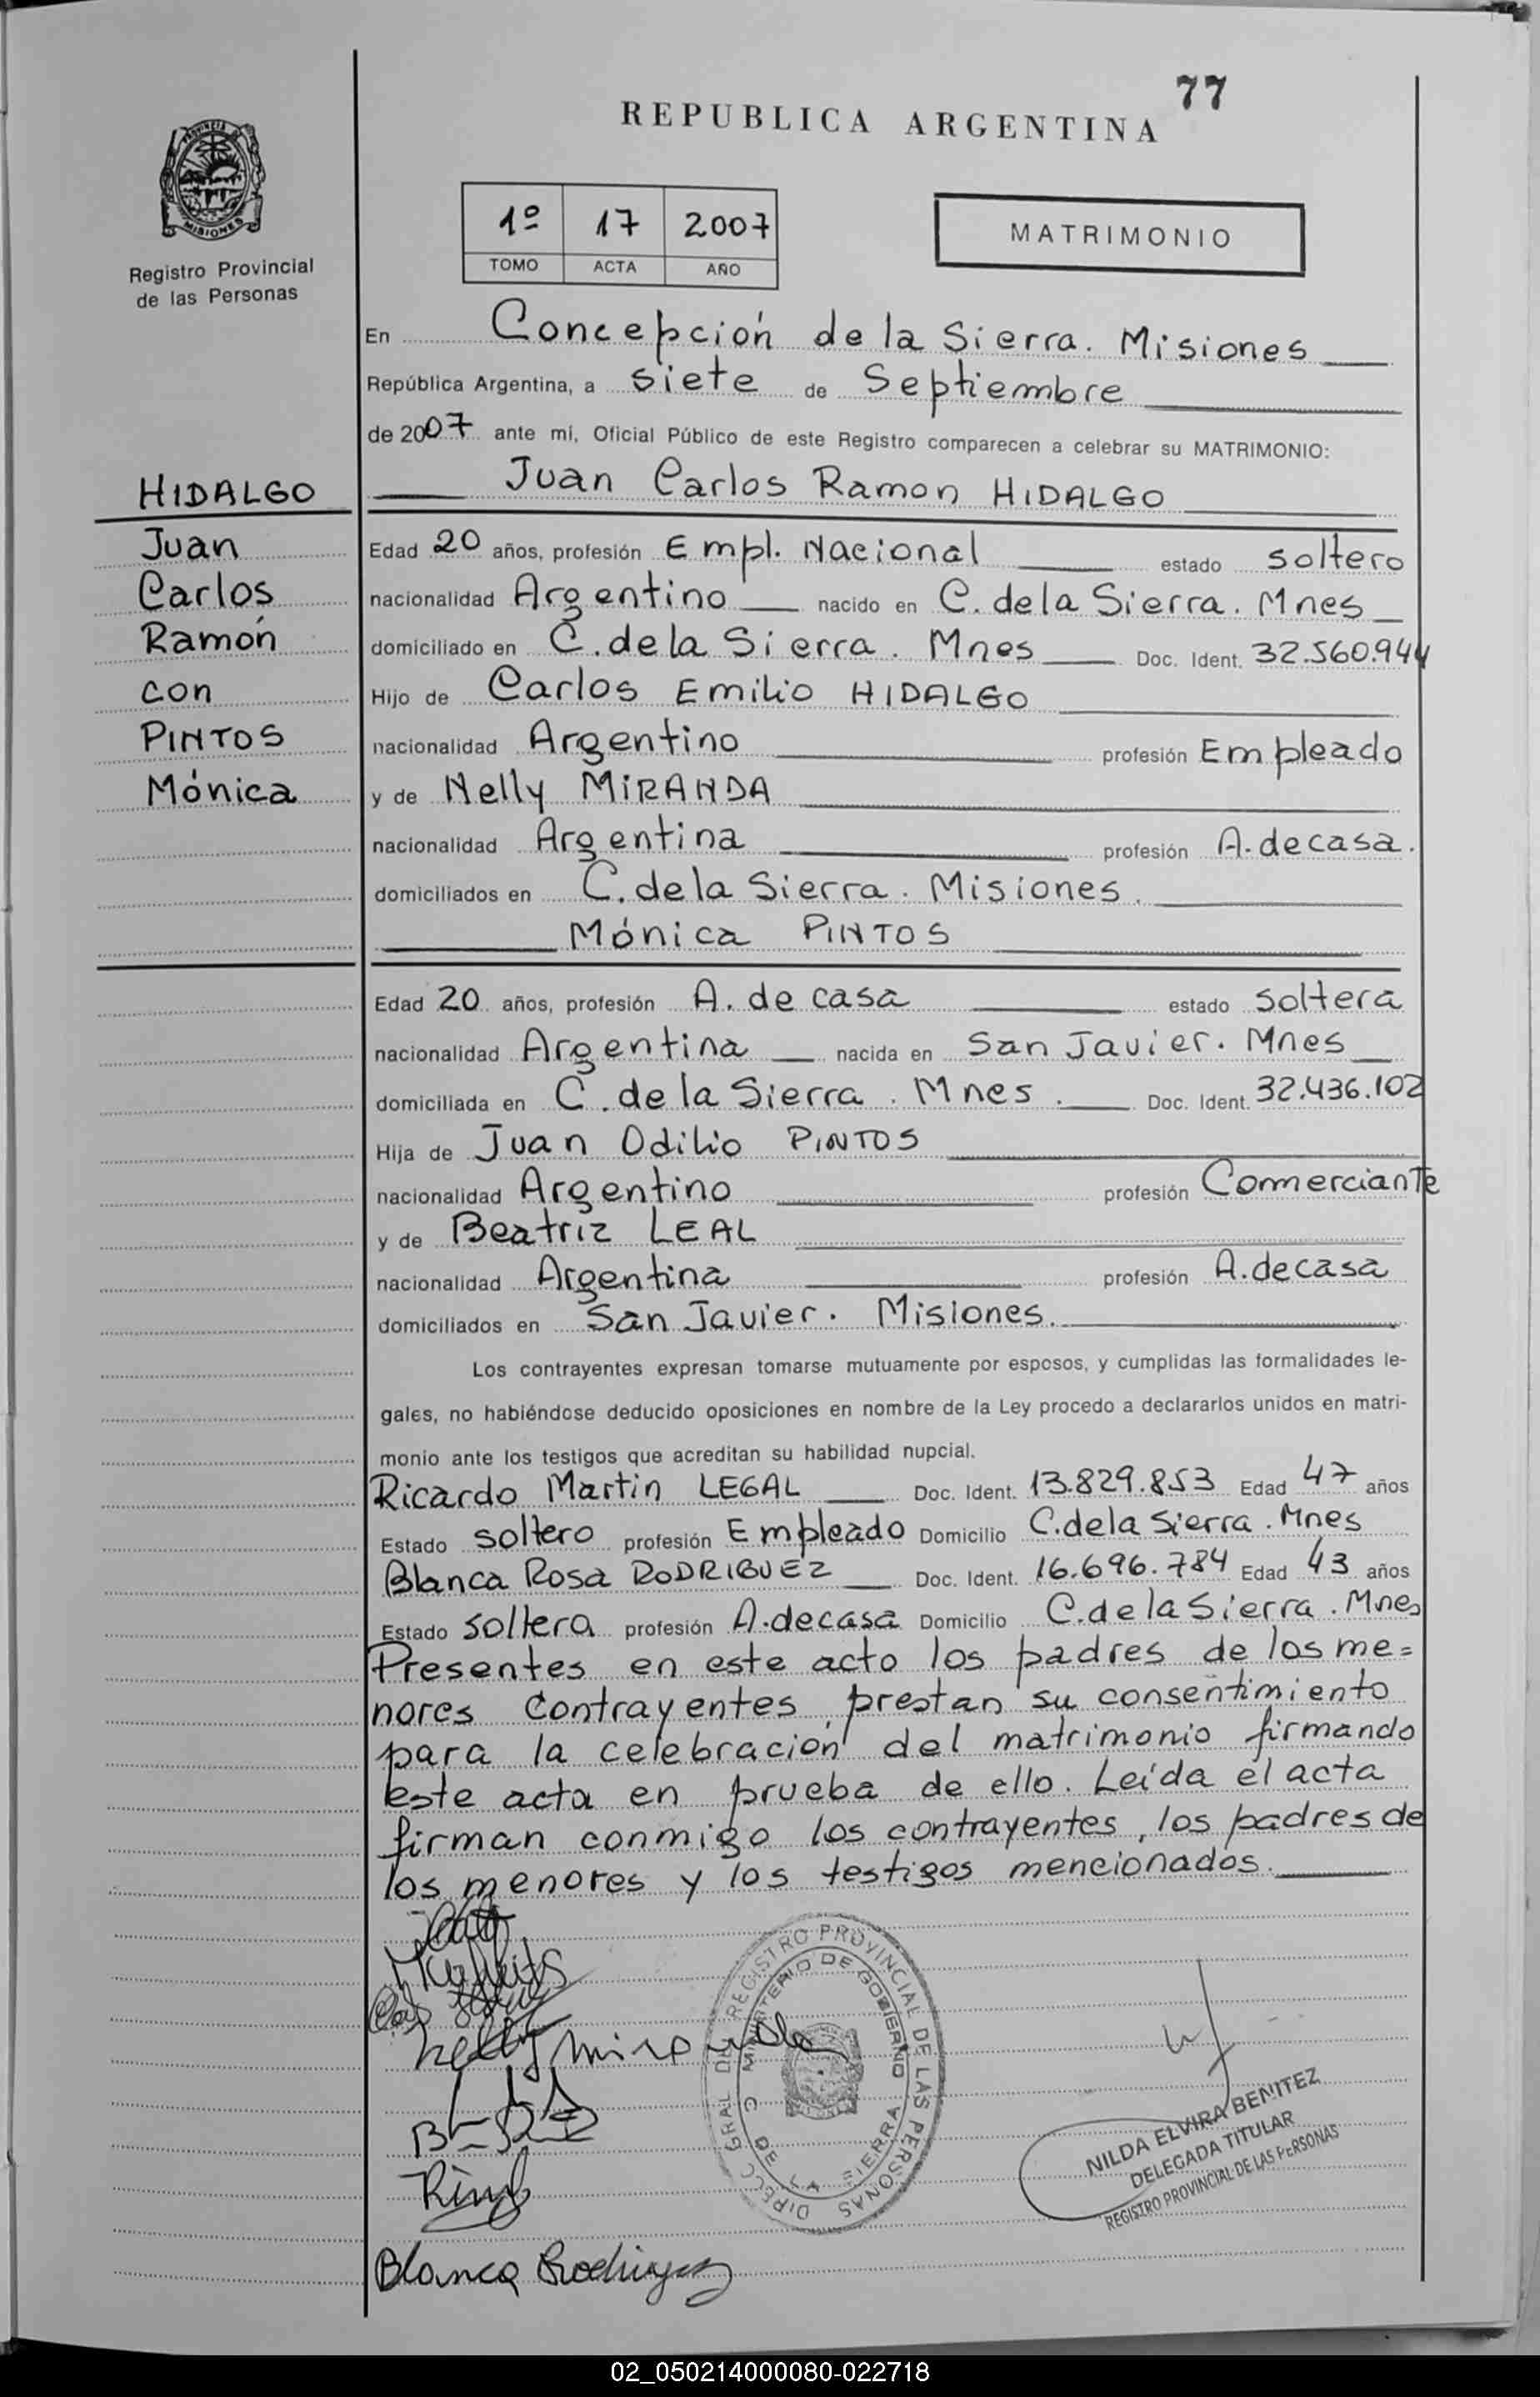 77
REPUBLICA ARGENTINA
PROVINCIA DE
MISIONES
Registro Provincial
de las Personas
1º 17 2007
TOMO ACTA AÑO
MATRIMONIO
En Concepción de la Sierra. Misiones
República Argentina, a siete de Septiembre
de 2007 ante mi, Oficial Público de este Registro comparecen a celebrar su MATRIMONIO:
HIDALGO
Juan
Carlos
Ramón
con
PINTOS
Mónica
Juan Carlos Ramon HIDALGO
Edad 20 años, profesión Empl. Nacional estado soltero
nacionalidad Argentino nacido en C. de la Sierra. Mnes
domiciliado en C. de la Sierra. Mnes Doc. Ident. 32.560.944
Hijo de Carlos Emilio HIDALGO
nacionalidad Argentino profesión Empleado
y de Nelly MIRANDA
nacionalidad Argentina profesión A. de casa.
domiciliados en C. de la Sierra. Misiones.
Mónica PINTOS
Edad 20 años, profesión A. de casa estado soltera
nacionalidad Argentina nacida en San Javier. Mnes
domiciliada en C. de la Sierra. Mnes. Doc. Ident. 32.436.102
Hija de Juan Odilio PINTOS
nacionalidad Argentino profesión Comerciante
y de Beatriz LEAL
nacionalidad Argentina profesión A. de casa
domiciliados en San Javier. Misiones.
Los contrayentes expresan tomarse mutuamente por esposos, y cumplidas las formalidades le-
gales, no habiéndose deducido oposiciones en nombre de la Ley procedo a declararlos unidos en matri-
monio ante los testigos que acreditan su habilidad nupcial.
Ricardo Martin LEGAL Doc. Ident. 13.829.853 Edad 47 años
Estado soltero profesión Empleado Domicilio C. de la Sierra. Mnes
Blanca Rosa RODRIGUEZ Doc. Ident. 16.696.784 Edad 43 años
Estado soltera profesión A. de casa Domicilio C. de la Sierra. Mnes
Presentes en este acto los padres de los me=
nores contrayentes, prestan su consentimiento
para la celebración del matrimonio firmando
este acta en prueba de ello. Leída el acta
firman conmigo los contrayentes, los padres de
los menores y los testigos mencionados.
Nelly Miranda
Blanca Rodriguez
DIRECC GRAL DEL REGISTRO PROVINCIAL DE LAS PERSONAS
MINISTERIO DE GOBIERNO
C DE LA SIERRA
NILDA ELVIRA BENITEZ
DELEGADA TITULAR
REGISTRO PROVINCIAL DE LAS PERSONAS
02_050214000080-022718